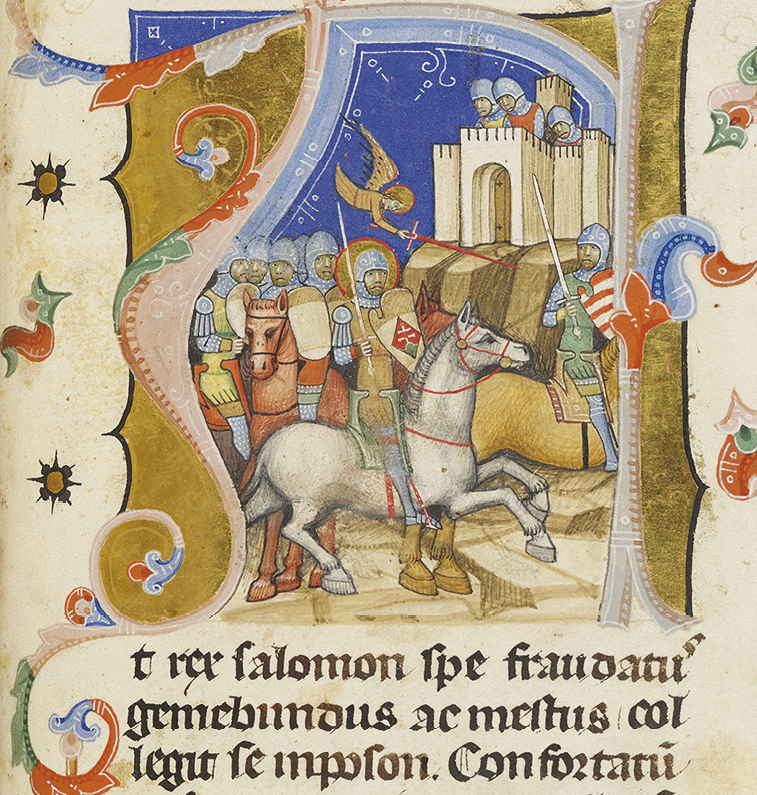 At rex salomon spe fraudatus
gemebundus ac mestus col
legit se in poson. Confortatū